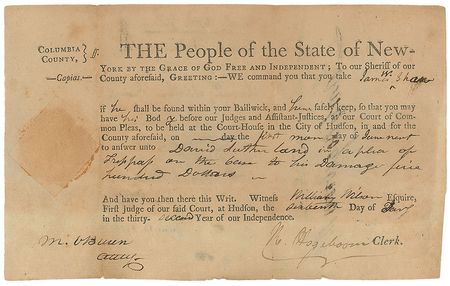 COLUMBIA COUNTY, } ss.
—Capias.—
THE People of the State of New-
YORK BY THE GRACE OF GOD FREE AND INDEPENDENT; To our Sheriff of our
County aforesaid, GREETING:—WE command you that you take
if he shall be found within your Bailiwick, and him safely keep, so that you may
have his Body before our Judges and Assistant-Justices, at our Court of Com-
mon Pleas, to be held at the Court-House in the City of Hudson, in and for the
County aforesaid, on day the first mon day of June next
to answer unto David Sutherland in a plea of
Trespass on the Case to his Damage five
hundred Dollars
And have you then there this Writ. Witness William Wilson Esquire,
First Judge of our said Court, at Hudson, the sixteenth Day of
in the thirty. second Year of our Independence.
M. V Buren
atty
Clerk.